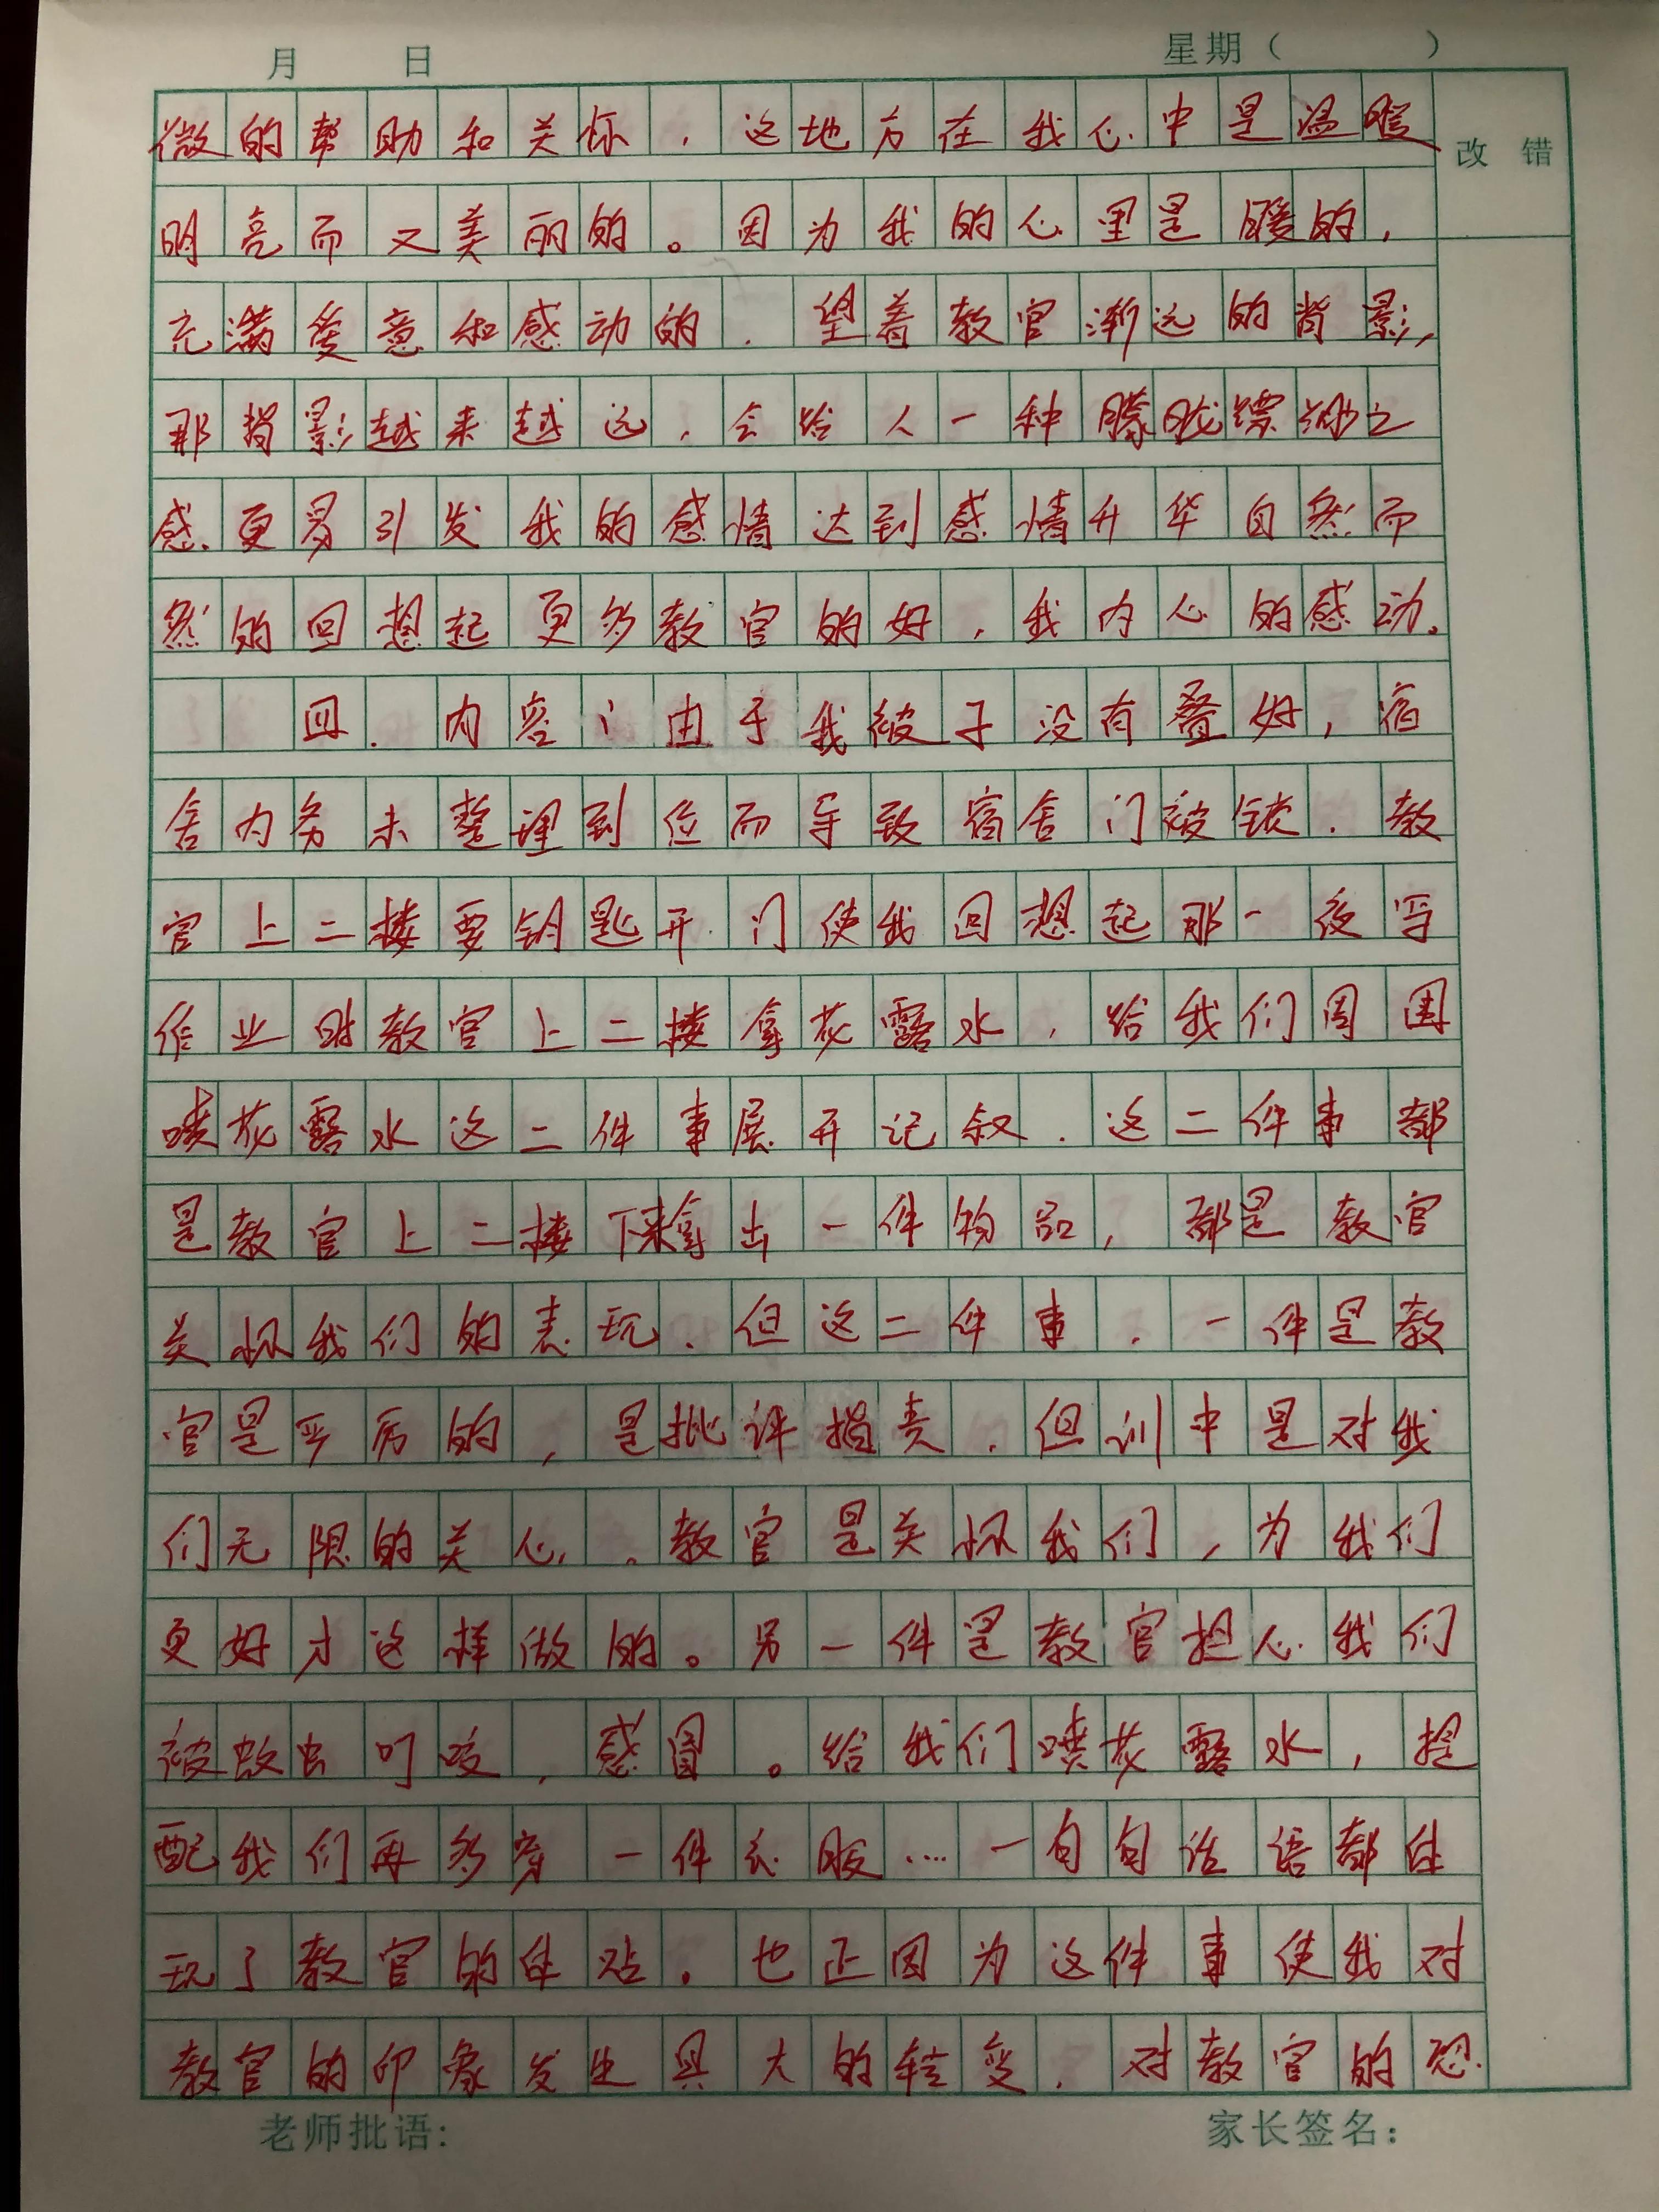 月 日 星期（ ）
改错
微的帮助和关怀，这地方在我心中是温暖
明亮而又美丽的。因为我的心里是暖的，
充满爱意和感动的．望着教官渐远的背影，
那背影越来越远，会给人一种朦胧缥缈之
感．更易引发我的感情达到感情升华自然而
然的回想起更多教官的好，我内心的感动。
四．内容：由于我被子没有叠好，宿
舍内务未整理到位而导致宿舍门被锁．教
官上二楼要钥匙开门使我回想起那一夜写
作业时教官上二楼拿花露水，给我们周围
喷花露水这二件事展开记叙．这二件事都
是教官上二楼下来拿出一件物品，都是教官
关怀我们的表现．但这二件事．一件是教
官是严厉的，是批评指责．但训中是对我
们无限的关心．教官是关怀我们，为我们
更好才这样做的。另一件是教官担心我们
被蚊虫叮咬，感冒。给我们喷花露水，提
醒我们再多穿一件衣服…一句句话语都体
现了教官的体贴．也正因为这件事使我对
教官的印象发生巨大的转变，对教官的恐
老师批语： 家长签名：